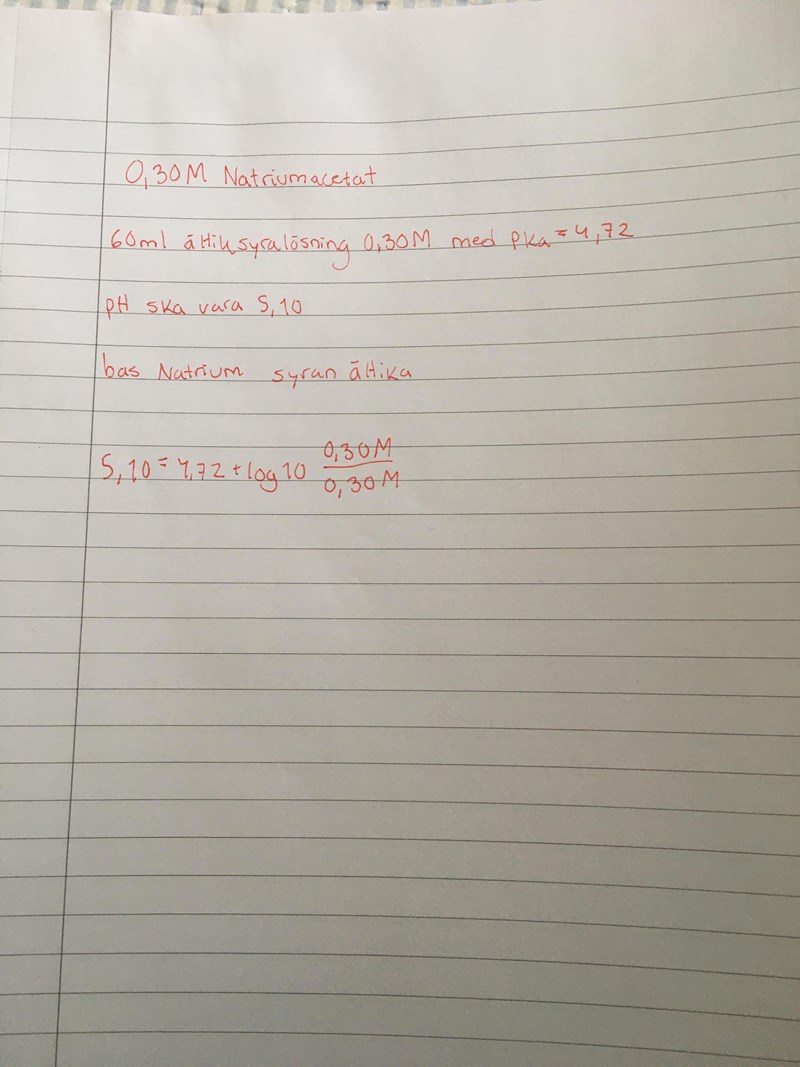 0,30M Natriumacetat
60ml ättiksyralösning 0,30M med pKa = 4,72
pH ska vara 5,10
bas Natrium syran ättika
5,10 = 4,72 + log10 0,30M / 0,30M